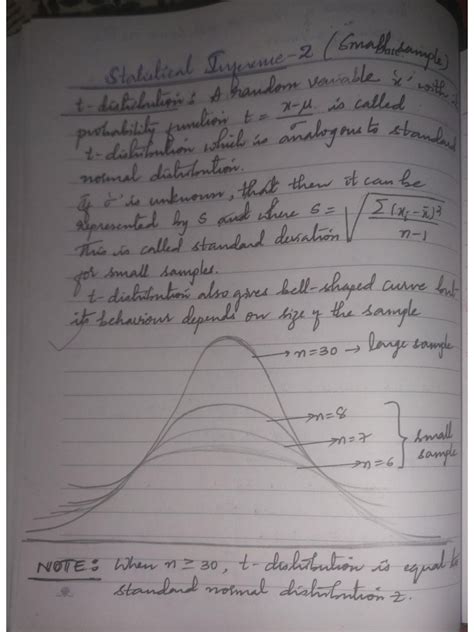 Statistical Inference-2 (Small sample)
t-distribution: A random variable 'x' with
probability function t = x-μ/σ is called
t-distribution which is analogous to standard
normal distribution.
If σ is unknown, that then it can be
represented by S and where S = √Σ(xᵢ-x̄)²/n-1
This is called standard deviation
for small samples.
t-distribution also gives bell-shaped curve but
its behaviour depends on size of the sample
→n=30 → large sample
→n=8
→n=7
→n=6
small
sample
NOTE: When n ≥ 30, t-distribution is equal to
standard normal distribution z.